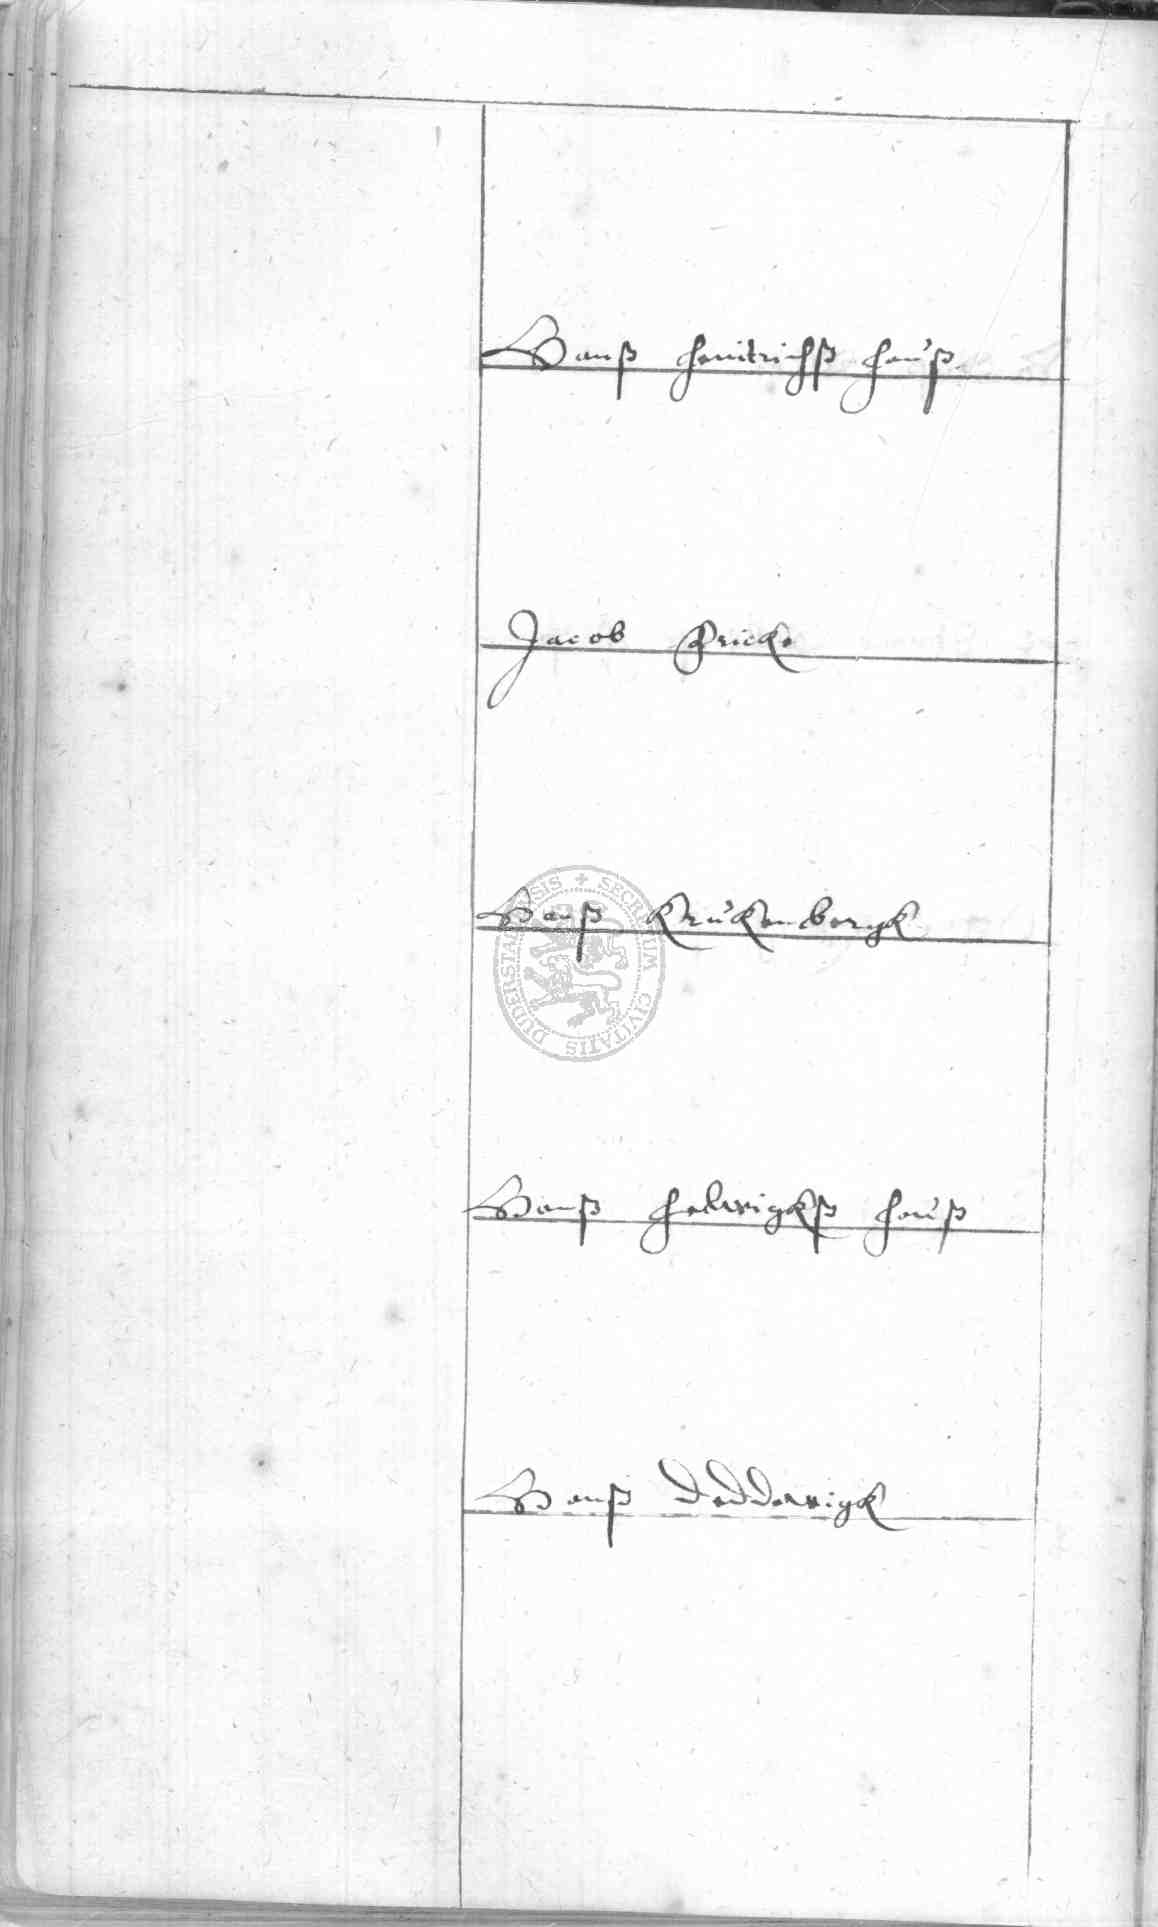 Hanß Heinrichß Hauß
Jacob Fricke
Hanß Krukenbergk
Hanß Helwigkß Hauß
Hanß Dedderigk
SECRETUM CIVITATIS DUDERSTADENSIS